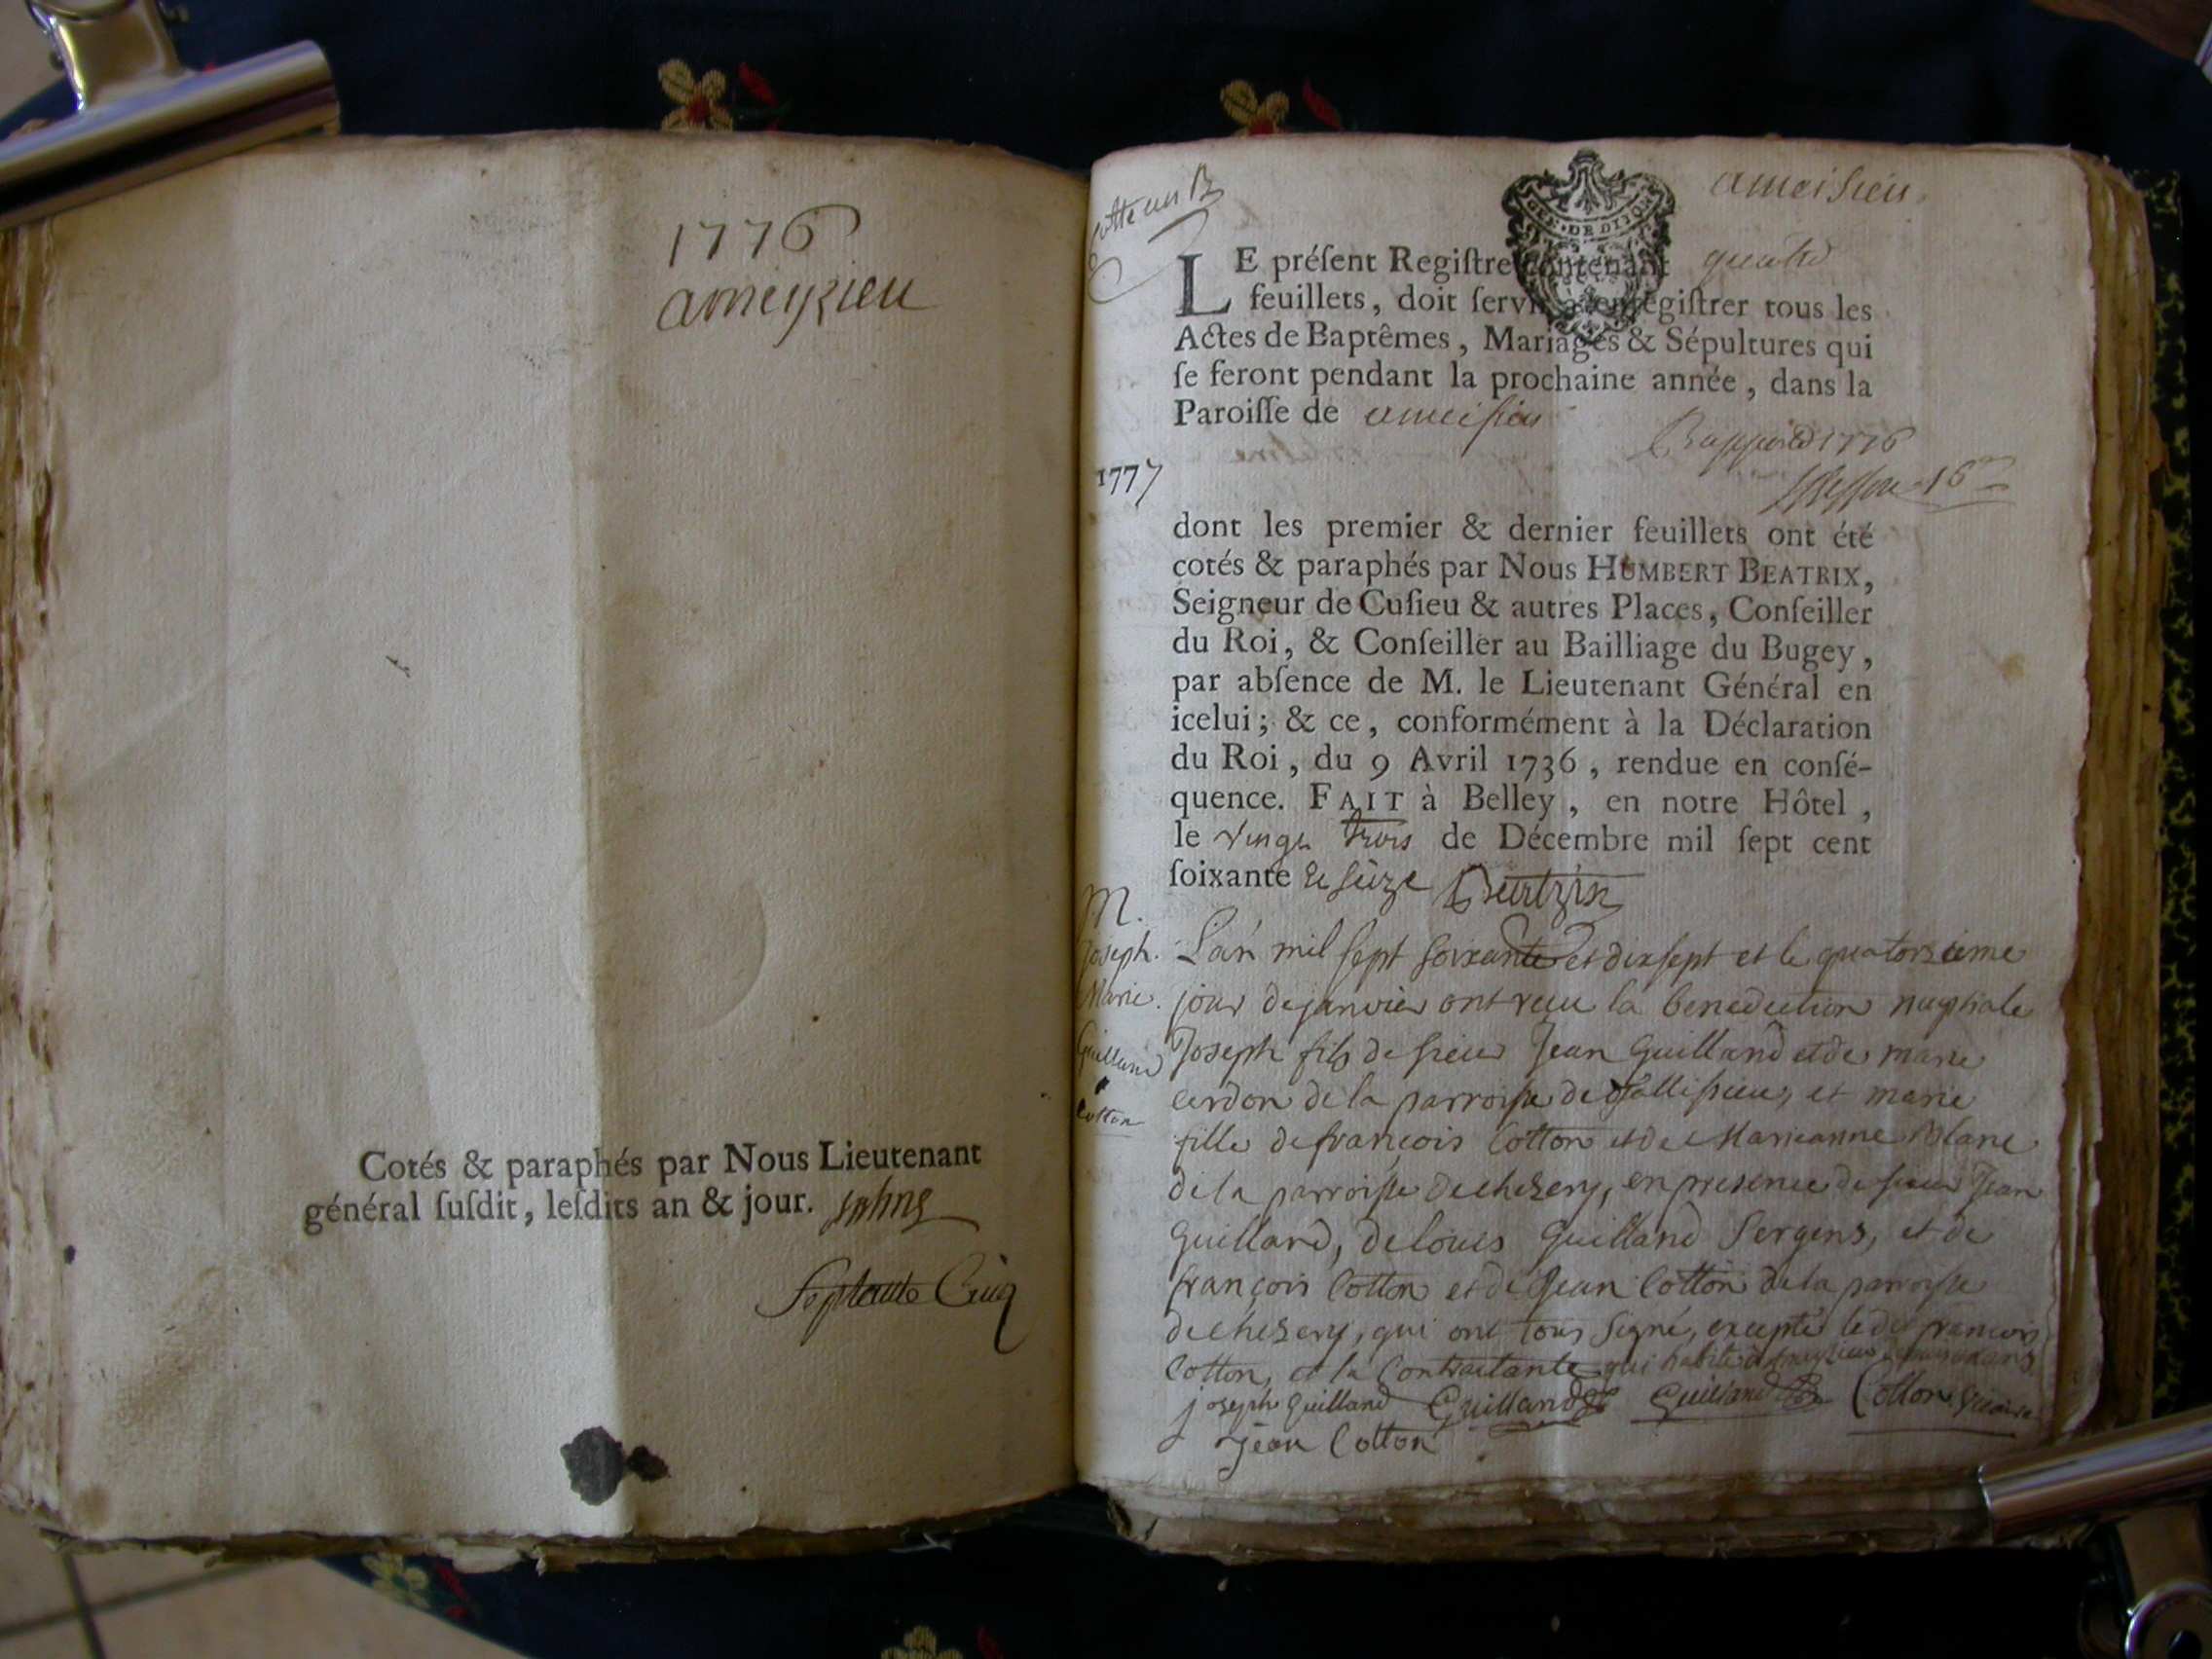 1776
ameyzieu
Cotés & paraphés par Nous Lieutenant
général ſuſdit, leſdits an & jour.
Septante Cinq
Cotte un B
GEN. DE DIJON
ameisieu
LE préſent Regiſtre contenant quatre
feuillets, doit ſervir à enregiſtrer tous les
Actes de Baptêmes, Mariages & Sépultures qui
ſe feront pendant la prochaine année, dans la
Paroiſſe de ameisieu
1776
1777
dont les premier & dernier feuillets ont été
cotés & paraphés par Nous HUMBERT BEATRIX,
Seigneur de Cuſieu & autres Places, Conſeiller
du Roi, & Conſeiller au Bailliage du Bugey,
par abſence de M. le Lieutenant Général en
icelui; & ce, conformément à la Déclaration
du Roi, du 9 Avril 1736, rendue en conſé-
quence. FAIT à Belley, en notre Hôtel,
le vingt trois de Décembre mil ſept cent
ſoixante et seize Beatrix
M.
Joseph.
Marie.
Guilland
Cotton
L'an mil sept soixante et dixsept et le quatorzieme
jour de janvier ont reçu la benediction nuptiale
Joseph fils de sieur Jean Guilland et de marie
cerdon de la parroisse de tallissieu, et marie
fille de françois Cotton et de Marieanne Blanc
de la parroisse de chezery, en presence de sieur Jean
Guilland, de louis Guilland Sergens, et de
françois Cotton et de Jean Cotton de la parroisse
de chézery, qui ont tous signé, excepté le dit francois
Cotton, et la Contractante qui habite
joseph Guilland Guilland Guilland Cotton vicaire
jean Cotton